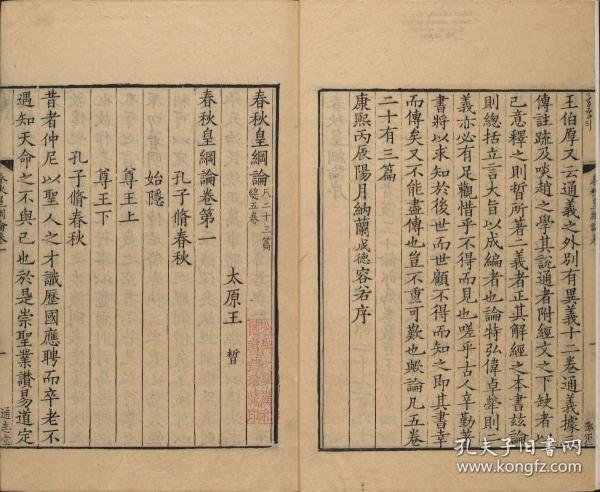 王伯厚又云通義之外別有異義十二卷通義據
傳註疏及啖趙之學其說通者附經文之下缺者以
己意釋之則晢所著二義者正其解經之本書玆論
則總括立言大旨以成編者也論特弘偉卓犖則二
義亦必有足觀惜乎不得而見也嗟乎古人辛勤著
書將以求知於後世而世顧不得而知之即其書幸
而傳矣又不能盡傳也豈不重可歎也歟論凡五卷
二十有三篇
康熙丙辰陽月納蘭成德容若序
春秋皇綱論凡二十三篇
總五卷
太原王 晢
春秋皇綱論卷第一
孔子脩春秋
始隱
尊王上
尊王下
孔子脩春秋
昔者仲尼以聖人之才識歷國應聘而卒老不
遇知天命之不與己也於是崇聖業讚易道定
通志堂
孔夫子旧书网
www.kongfz.com